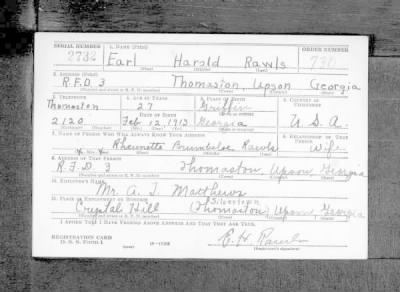 SERIAL NUMBER 1. NAME (Print) ORDER NUMBER
2732 Earl Harold Rawls
(First) (Middle) (Last)
2. ADDRESS (Print)
R.F.D. 3 Thomaston, Upson Georgia
3. TELEPHONE 4. AGE IN YEARS 5. PLACE OF BIRTH 6. COUNTRY OF CITIZENSHIP
Thomaston 27 Griffin
DATE OF BIRTH
2120 Feb 12, 1913 Georgia U.S.A.
7. NAME OF PERSON WHO WILL ALWAYS KNOW YOUR ADDRESS 8. RELATIONSHIP OF THAT PERSON
Brumbeloe Rawls Wife
9. ADDRESS OF THAT PERSON
R.F.D 3 Thomaston Upson, Georgia
10. EMPLOYER'S NAME
Mr. A. T. Matthews
11. PLACE OF EMPLOYMENT OR BUSINESS Silvertown
Crystal Hill (Thomaston) Upson, Georgia
I AFFIRM THAT I HAVE VERIFIED ABOVE ANSWERS AND THAT THEY ARE TRUE.
REGISTRATION CARD
D. S. S. FORM 1 E. H. Rawls
(Registrant's signature)